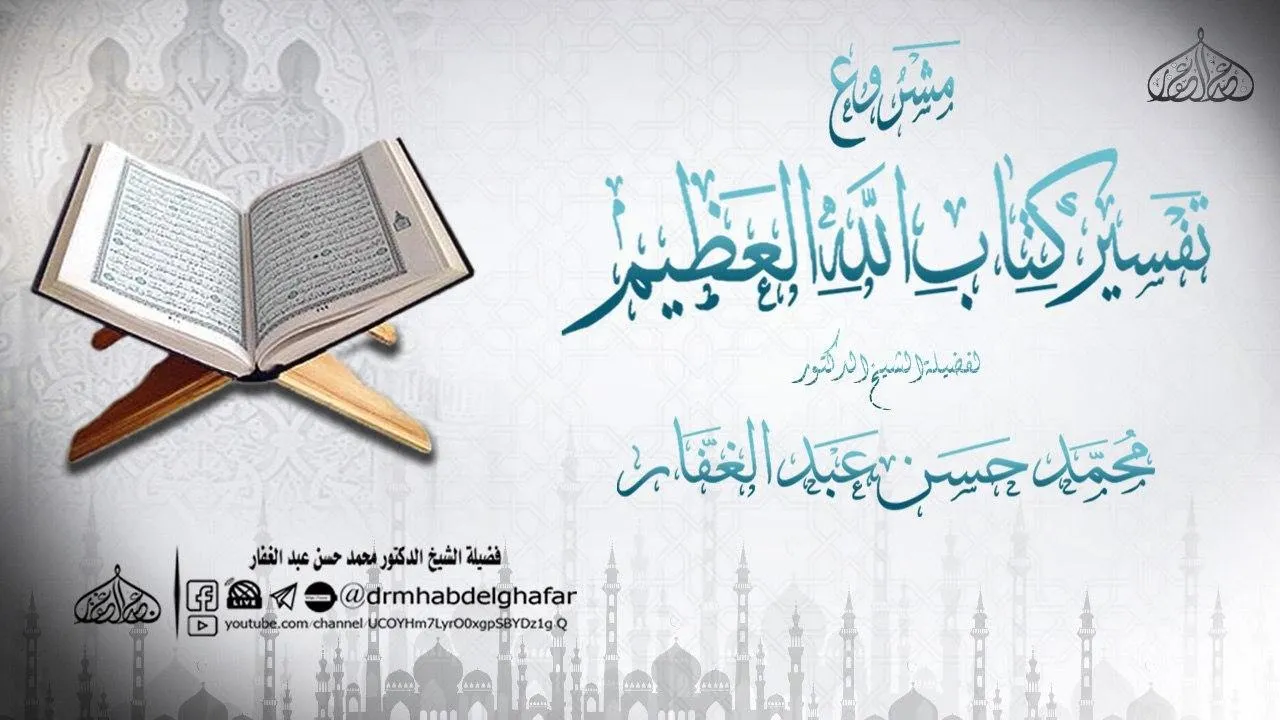 مشروع
تفسير كتاب الله العظيم
لفضيلة الشيخ الدكتور
محمد حسن عبد الغفار
فضيلة الشيخ الدكتور محمد حسن عبد الغفار
@drmhabdelghafar
youtube.com/channel/UCOYHm7LyrO0xgpSBYDz1g.Q
LIVE